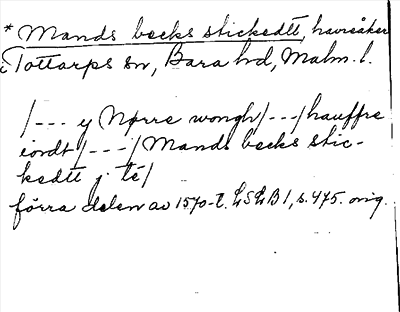 * Mands becks stickedtt, havreåker
i Tottarps sn, Bara hd, Malm. l.
/--- y Nørre wongh/---/hauffre
iordt/---/Mands becks stic-
kedtt j. té/
förra delen av 1570-t. LSLB 1, s. 475. orig.